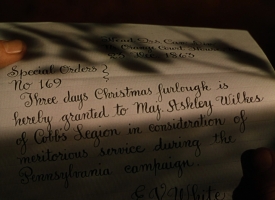 Special Orders }
No 169
Three days Christmas furlough is
hereby granted to Maj. Ashley Wilkes
of Cobbs Legion in consideration of
meritorious service during the
Pennsylvania campaign
E. V. White